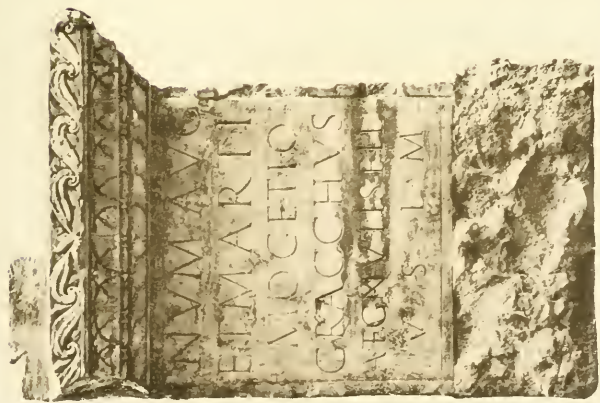 NVM AVG
ET MARTI
MOCETIO
GRACCHVS
FIL
V S L M